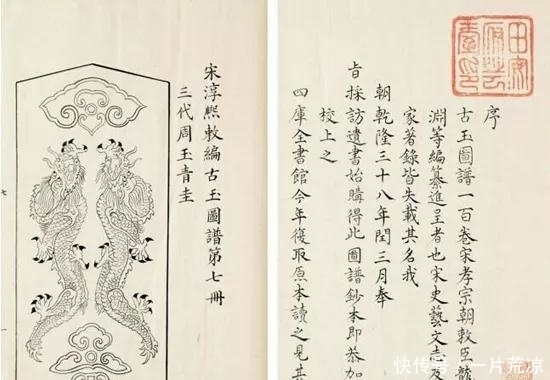 序
古玉圖譜一百卷宋孝宗朝敕臣龍
淵等編纂進呈者也宋史藝文志及
家著錄皆失載其名我
朝乾隆三十八年閏三月奉
旨採訪遺書始購得此圖譜鈔本即恭加
校上之
四庫全書館今年復取原本讀之見其
宋淳熙敕編古玉圖譜第七冊
三代周玉青圭
快传号/一片荒凉